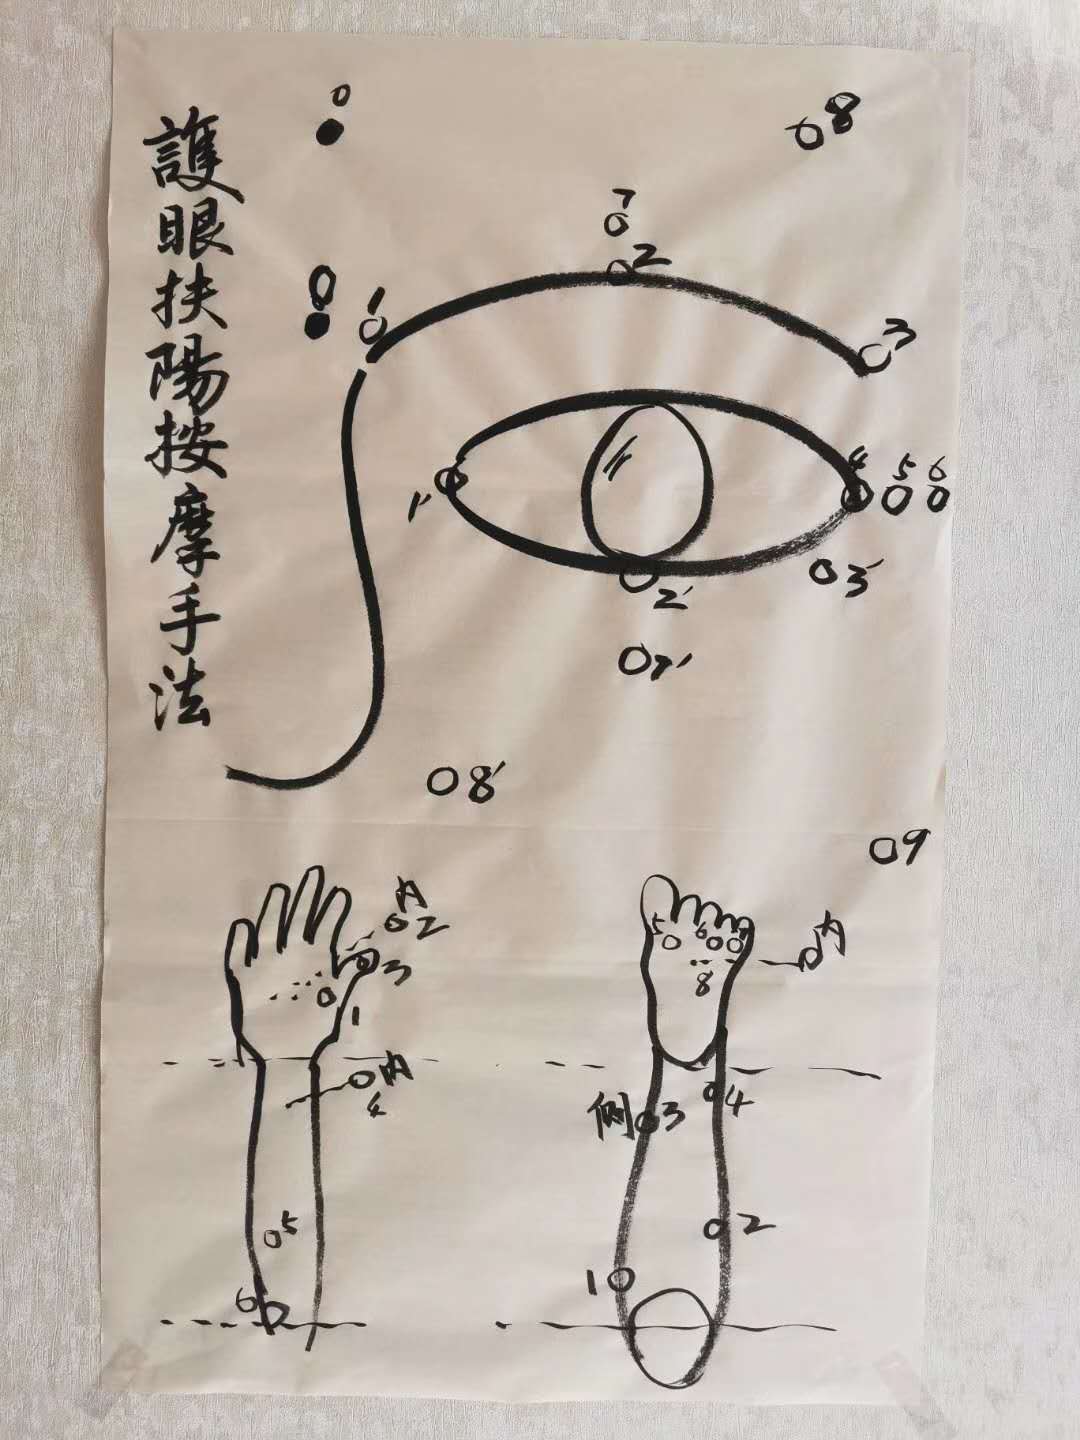 護眼扶陽按摩手法
0
8
7
0
2
1
3
4
5
6
1'
3'
2'
7'
8'
9
内
2
3
1
内
4
5
6
5
6
7
内
8
4
側
3
2
1